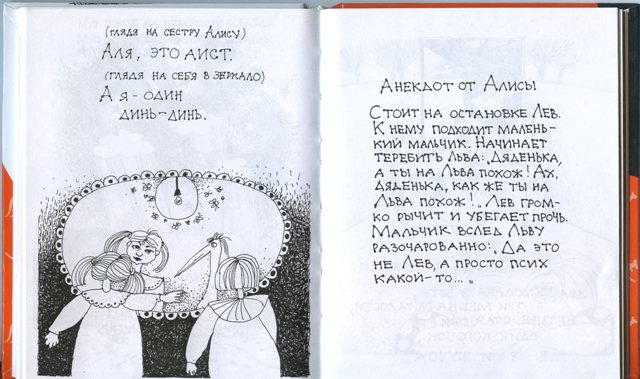 (глядя на сестру Алису)
Аля, это аист.
(глядя на себя в зеркало)
А я - один
динь-динь.
Анекдот от Алисы
Стоит на остановке Лев.
К нему подходит малень-
кий мальчик. Начинает
теребить Льва: „Дяденька,
а ты на Льва похож! Ах,
дяденька, как же ты на
Льва похож!„ Лев гром-
ко рычит и убегает прочь.
Мальчик вслед Льву
разочарованно: „Да это
не Лев, а просто псих
какой-то...„